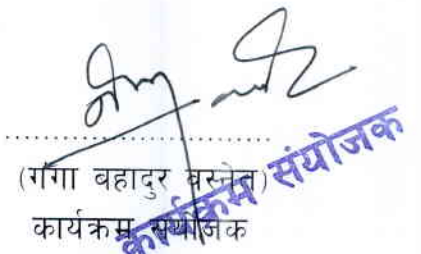 (गंगा बहादुर बस्नेत)
कार्यक्रम संयोजक
कार्यक्रम संयोजक